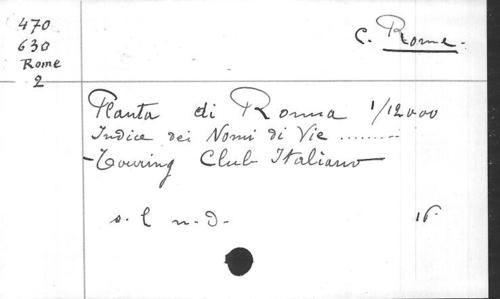 470
630
Rome
2
C. Rome.
Pianta di Roma 1/12000
Indice dei Nomi di Vie ..........
- Touring Club Italiano
s. l n. d.
16